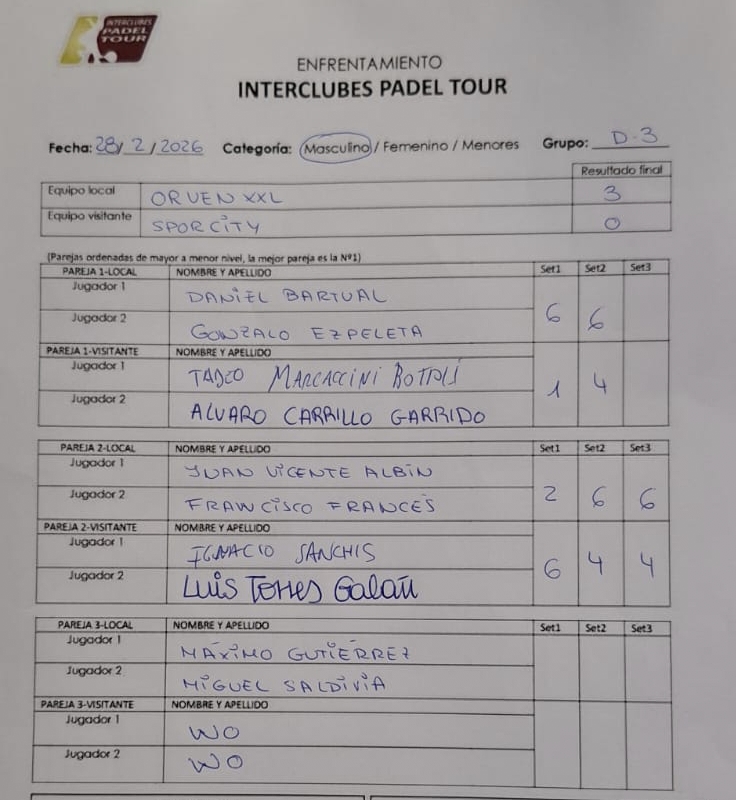 INTERCLUBES
PADEL
TOUR
ENFRENTAMIENTO
INTERCLUBES PADEL TOUR
Fecha: 28/2/2026 Categoría: Masculino / Femenino / Menores Grupo: D-3
Resultado final
Equipo local ORVEN XXL 3
Equipo visitante SPORCITY 0
(Parejas ordenadas de mayor a menor nivel, la mejor pareja es la Nº1)
PAREJA 1-LOCAL NOMBRE Y APELLIDO Set1 Set2 Set3
Jugador 1 DANIEL BARTUAL
Jugador 2 GONZALO EZPELETA
6 6
PAREJA 1-VISITANTE NOMBRE Y APELLIDO
Jugador 1 TADEO MARCACCINI
Jugador 2 ALVARO CARRILLO GARRIDO
1 4
PAREJA 2-LOCAL NOMBRE Y APELLIDO Set1 Set2 Set3
Jugador 1 JUAN VICENTE ALBIN
Jugador 2 FRANCISCO FRANCÉS
2 6 6
PAREJA 2-VISITANTE NOMBRE Y APELLIDO
Jugador 1 IGNACIO SANCHIS
Jugador 2 Luis Torres Galán
6 4 4
PAREJA 3-LOCAL NOMBRE Y APELLIDO Set1 Set2 Set3
Jugador 1 MÁXIMO GUTIÉRREZ
Jugador 2 MIGUEL SALDIVIA
PAREJA 3-VISITANTE NOMBRE Y APELLIDO
Jugador 1 WO
Jugador 2 WO